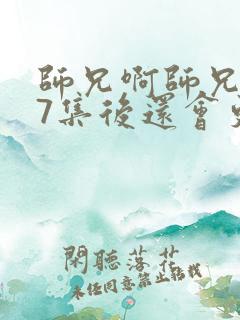 師兄啊師兄
7集後還會
閑聽落花
未任同意禁止轉載